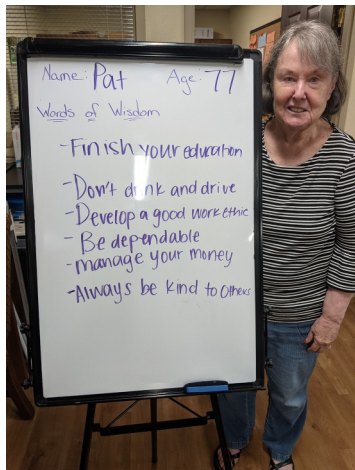 Name: Pat Age: 77
Words of Wisdom
- Finish your education
- Don't drink and drive
- Develop a good work ethic
- Be dependable
- manage your money
- Always be kind to others